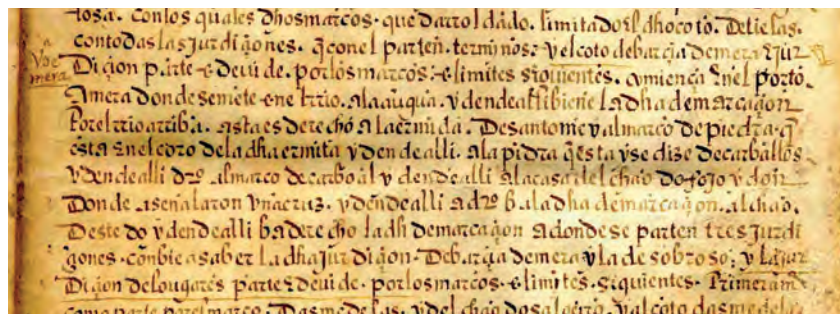 tosa. con los quales dhos marcos. que da rrol dado. limitado el dho coto. De tie las.
con todas las jur diçiones. q con el parten. terminos: y el coto de barçia de mera z jur
a Voe mera
Diçion parte e deui de. por los marcos: e limites siguientes. comiença en el porto
Amera donde se mete ene l rrio. ala auquia. y dende alli biene la dha demarcaçion
Por el rrio arriba. asta es derecho a la ermida. De santonie y al marco de piedra. q
esta en el çedro de la dha ermita y den de alli. ala piedra q esta y se dize de carballos
y den de alli dro al marco de carboal y dende alli a la casa del chao do fojo y do in
Donde a señalaron vna cruz. y dende alli a dro b a la dha demarcaçon. al chao.
Deste do y den de alli ba derecho la dh demarcaçon a donde se parten tres jurdi
çones. conbie a saber la dha jur diçion. De barçia de mera y la de sobroso: y la jur
Diçion de lougares parte e deuide. por los marcos. e limites. siguientes. Primeram
como parte por el marco. Dasme de las. y del chao dos al y al coto dasmedela